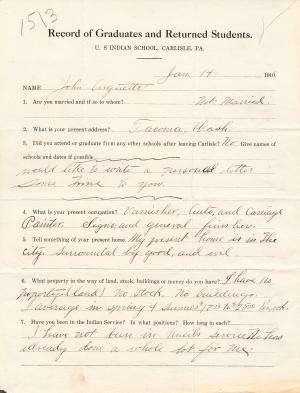 1513
Record of Graduates and Returned Students.
U. S INDIAN SCHOOL, CARLISLE, PA.
Jan 14 1910.
NAME John
1. Are you married and if so to whom? Not Married.
2. What is your present address? Tacoma, Wash.
3. Did you attend or graduate from any other schools after leaving Carlisle? No. Give names of
schools and dates if possible
would like to write a personal letter
some time to you.
4. What is your present occupation? Varnisher, Auto, and Carriage
Painter. Signs, and general finisher.
5. Tell something of your present home. My present home is in the
City. Surroundal by good, and evil
6. What property in the way of land, stock, buildings or money do you have? I have no
property (land) No stock. No buildings.
I average in spring & summer to week.
7. Have you been in the Indian Service? In what positions? How long in each?
I have not been in service. has
already done a whole lot for me.